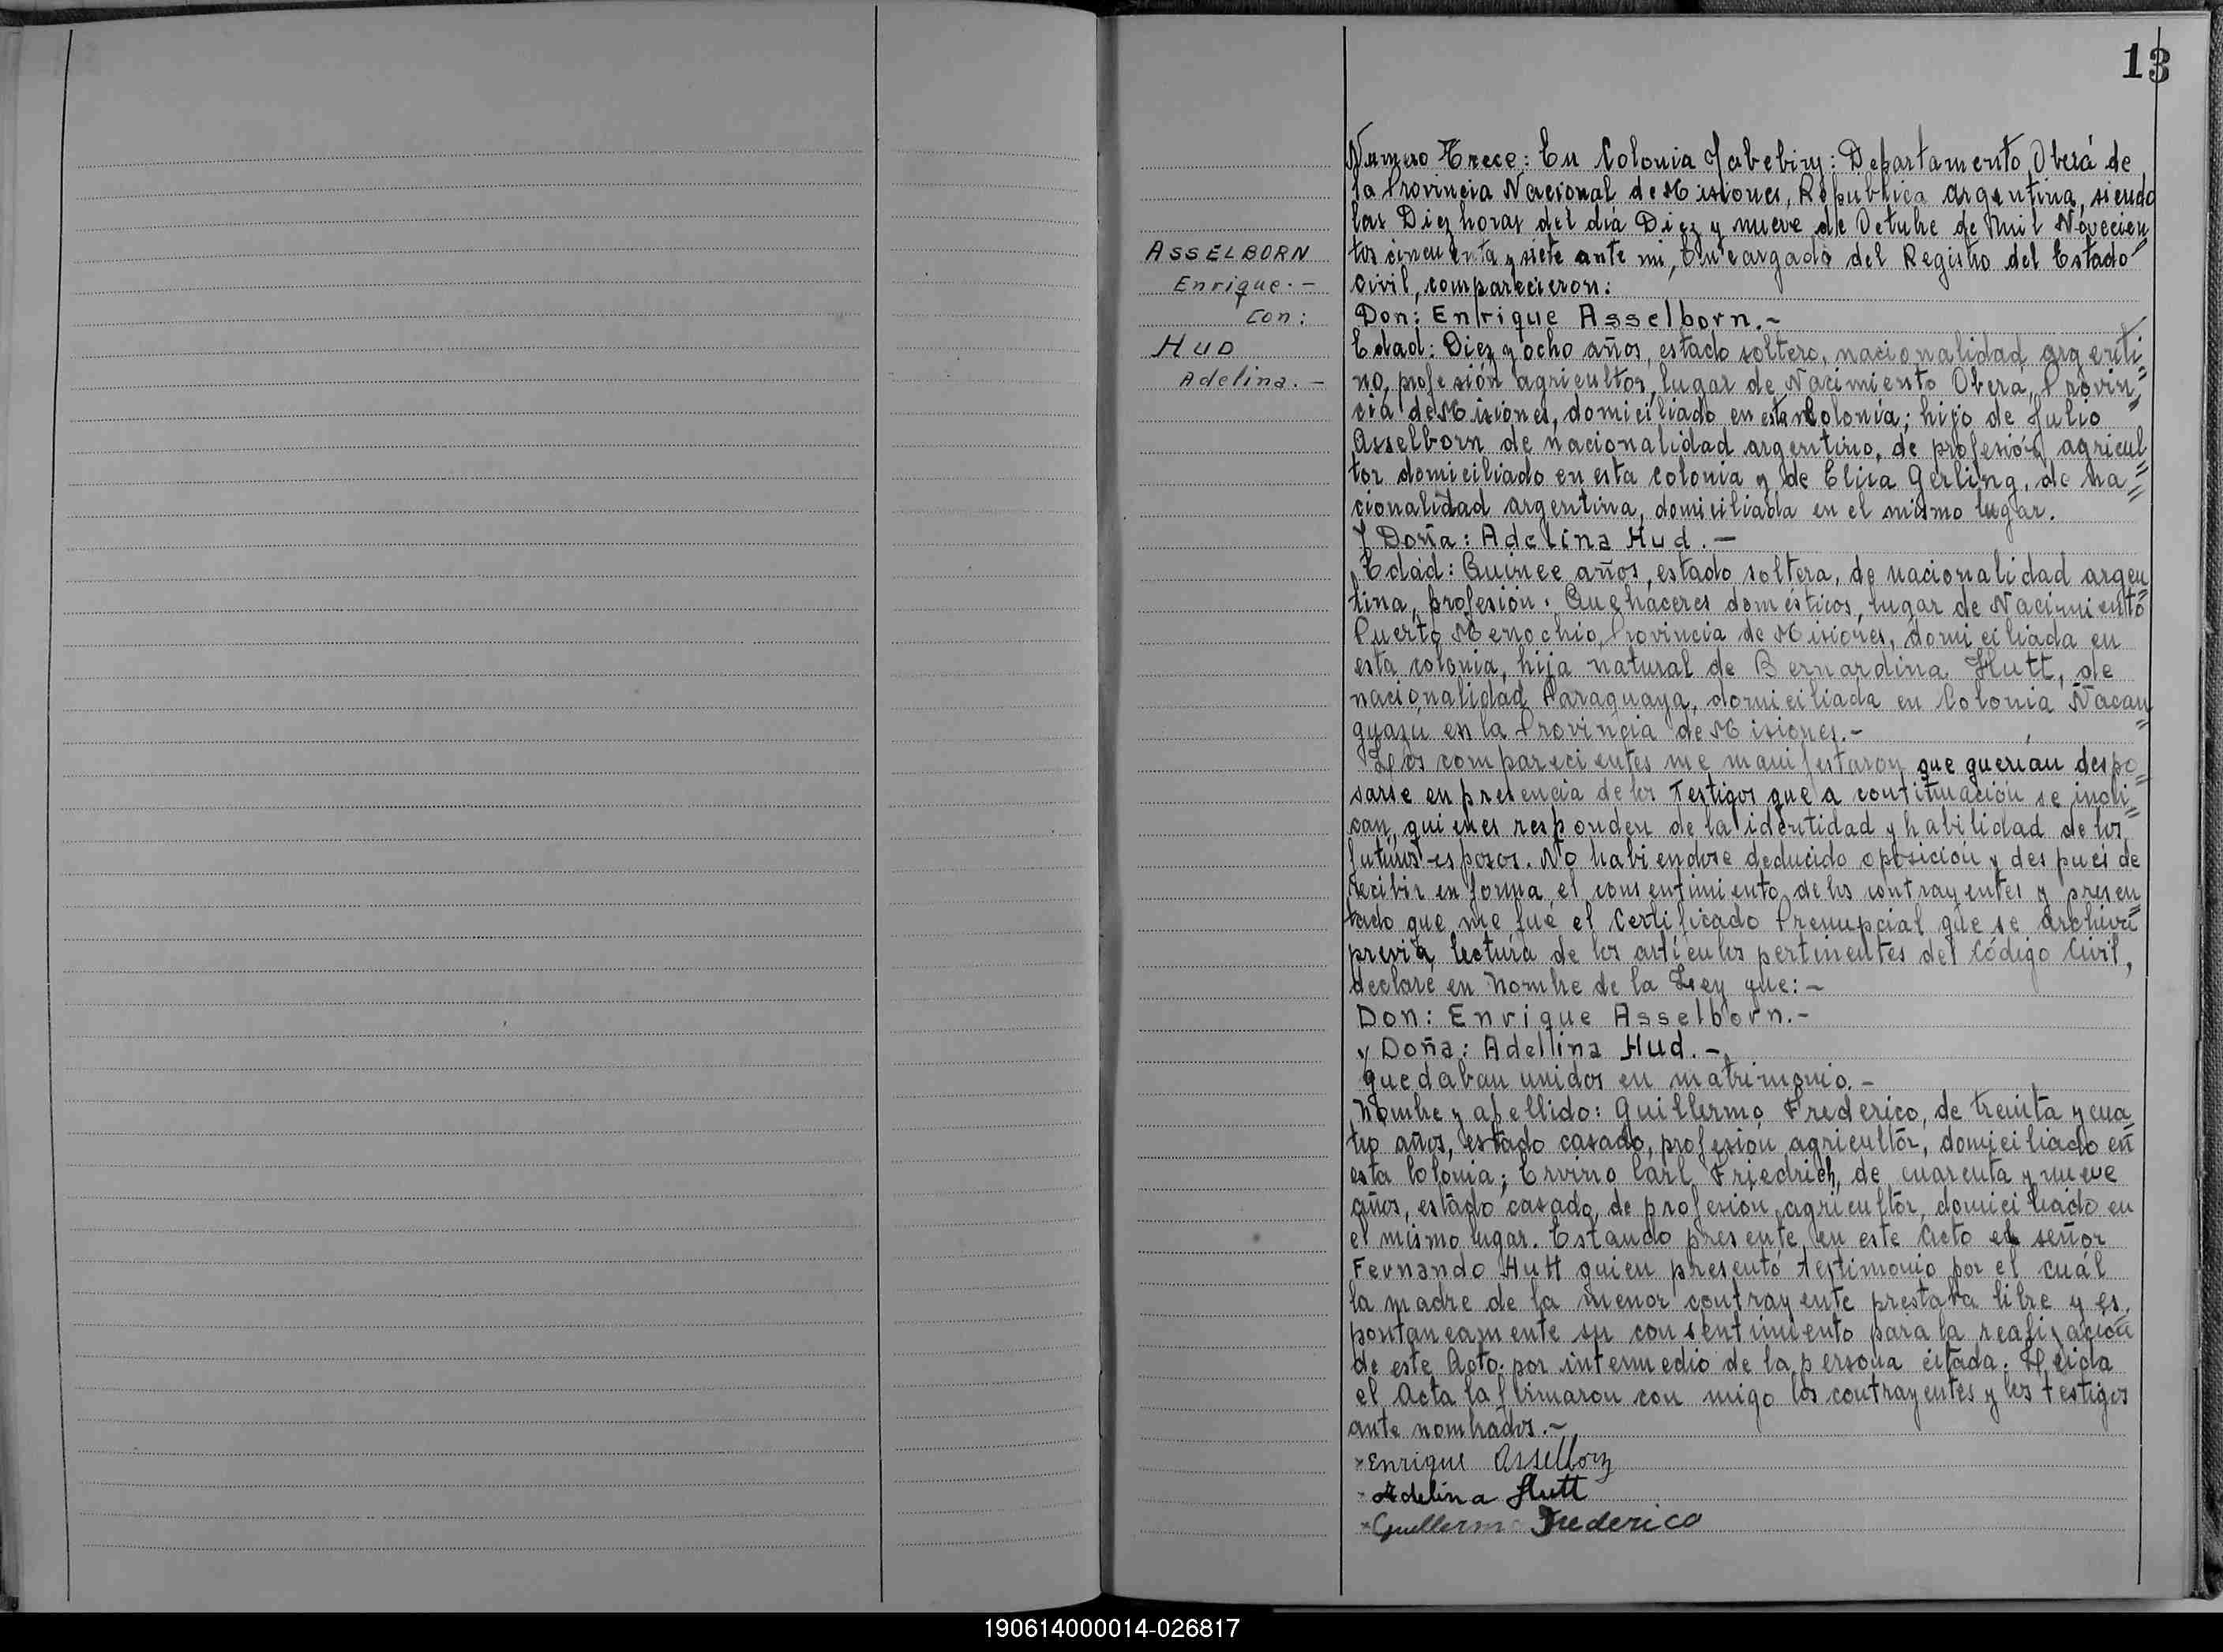 13
Numero Trece: En Colonia Yabebiry: Departamento Oberá de
la Provincia Nacional de Misiones, Republica argentina, siendo
las Diez horas del día Diez y nueve de Octubre de Mil Novecien
tos cincuenta y siete ante mi, Encargado del Registro del Estado
Civil, comparecieron:
ASSELBORN
Enrique.-
con:
HUD
Adelina.-
Don: Enrique Asselborn.-
Edad: Diez y ocho años, estado soltero, nacionalidad argenti
no, profesión agricultor, lugar de Nacimiento Oberá, Provin
cia de Misiones, domiciliado en esta Colonia; hijo de Julio
Asselborn de nacionalidad argentino, de profesión agricul
tor domiciliado en esta colonia y de Elisa Gerling, de na
cionalidad argentina, domiciliada en el mismo lugar.
Y Doña: Adelina Hud.-
Edad: Quince años, estado soltera, de nacionalidad argen
tina, profesión. Quehaceres domésticos, lugar de Nacimiento
Puerto Menochio, Provincia de Misiones, domiciliada en
esta colonia, hija natural de Bernardina Hutt, de
nacionalidad Paraguaya, domiciliada en Colonia Ñacan
guazú en la Provincia de Misiones.-
Los comparecientes me manifestaron que querían despo
sarse en presencia de los Testigos que a continuación se indi
can, quienes responden de la identidad y habilidad de los
futuros esposos. No habiendose deducido oposición y despues de
recibir en forma el consentimiento de los contrayentes y presen
tado que me fué el Certificado Prenupcial que se archiva
previa lectura de los artículos pertinentes del Código Civil,
declaré en Nombre de la Ley que:-
Don: Enrique Asselborn.-
y Doña: Adellina Hud.-
quedaban unidos en matrimonio.-
Nombre y apellido: Guillermo Frederico, de treinta y cua
tro años, estado casado, profesión agricultor, domiciliado en
esta Colonia; Ervino Carl Friedrich, de cuarenta y nueve
años, estado casado, de profesión agricultor, domiciliado en
el mismo lugar. Estando presente en este Acto el señor
Fernando Hutt quien presentó testimonio por el cuál
la madre de la menor contrayente prestaba libre y es
pontaneamente su consentimiento para la realización
de este Acto. por intermedio de la persona citada. Leida
el Acta la firmaron con migo los contrayentes y los testigos
ante nombrados.-
Enrique Asselborn
Adelina Hutt
Guillermo Frederico
190614000014-026817